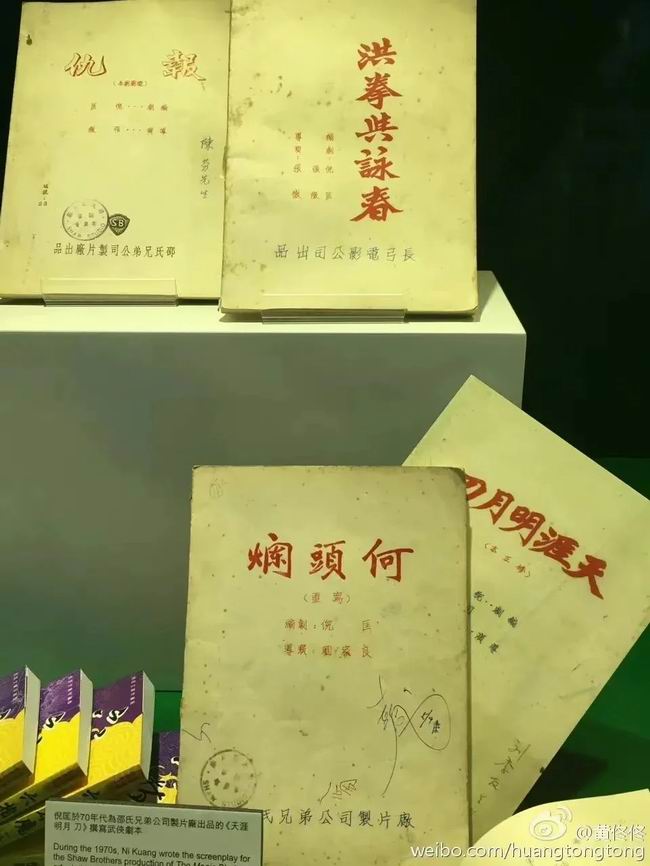 報仇
(電影劇本)
編劇··倪匡
導演··張徹
SB
邵氏兄弟公司製片廠出品
洪拳與詠春
編劇:倪匡
導演:張徹
長弓電影公司出品
天涯明月刀
(修正本)
編劇··倪
導演
爛頭何
編劇:倪匡
導演:劉家良
氏兄弟公司製片廠
倪匡於70年代為邵氏兄弟公司製片廠出品的《天涯
明月刀》撰寫武俠劇本
During the 1970s, Ni Kuang wrote the screenplay for
the Shaw Brothers production of The Magic
weibo.com/huangtongtong